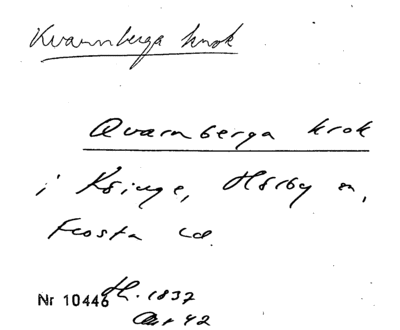 Kvarnberga krok
Qvarnberga krok
i Ksinge, Hörby sn,
Frosta hd.
Nr 10446 H. 1837
Akt 42